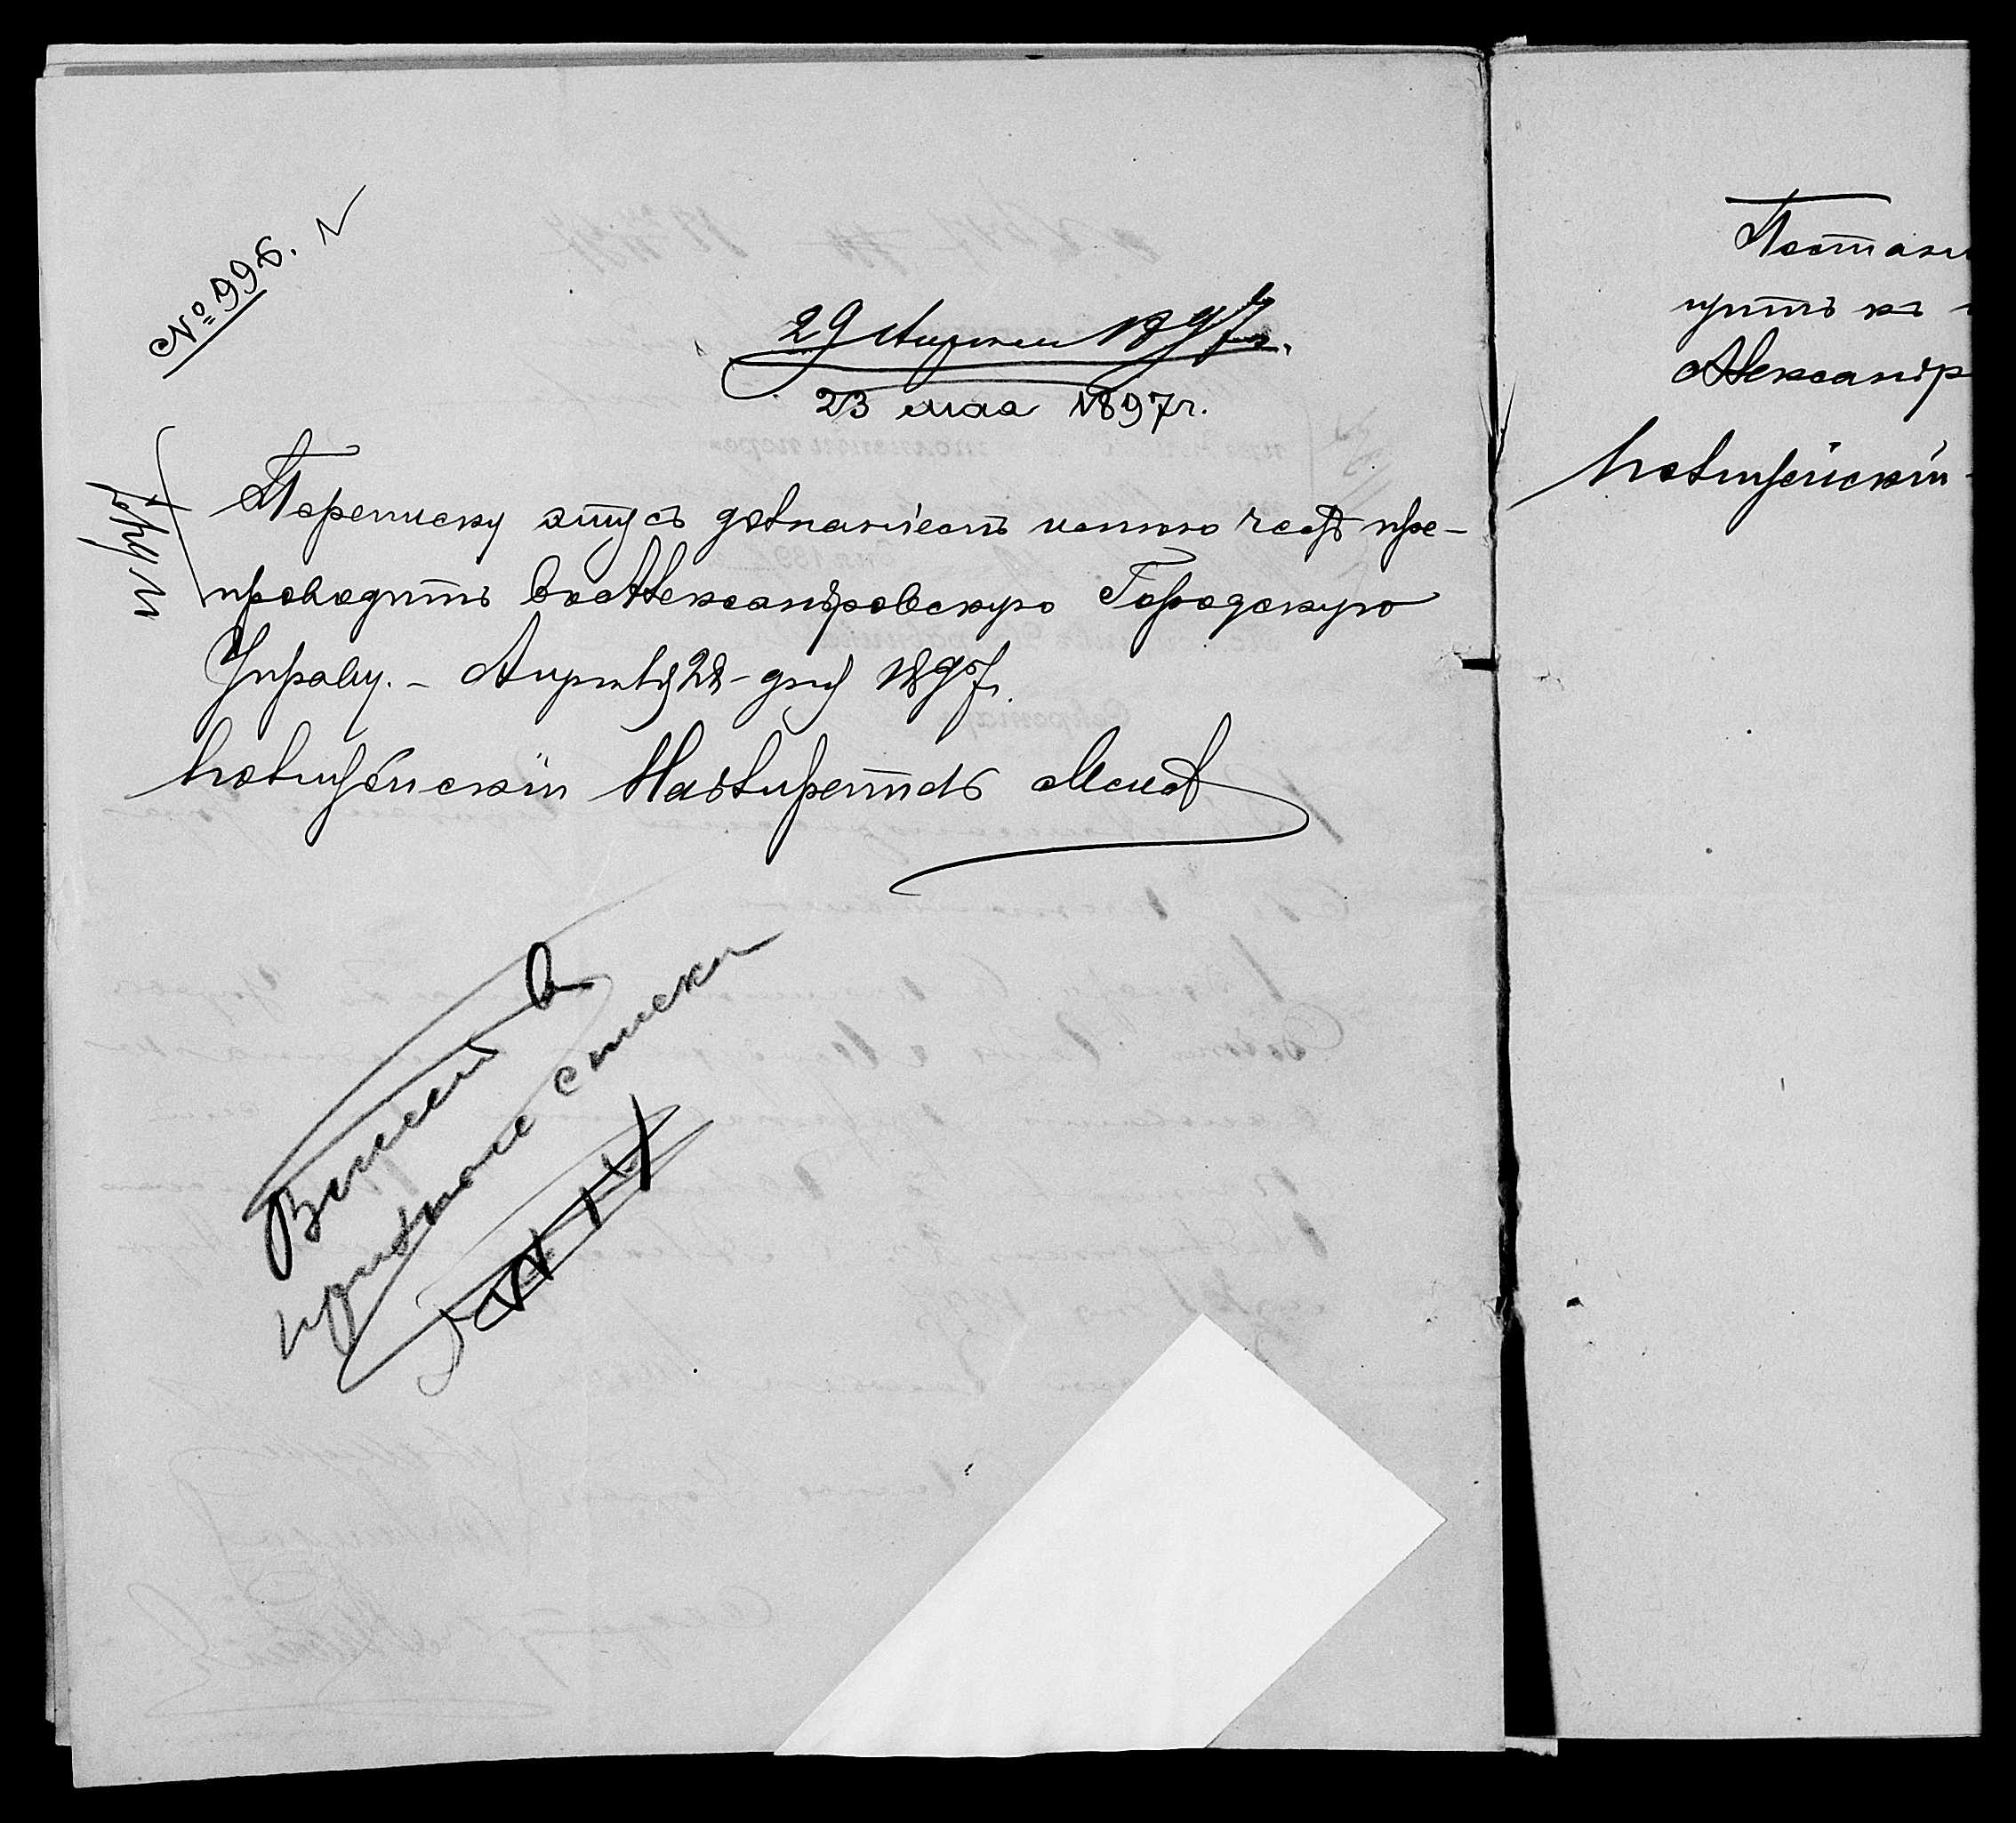 № 996.
29 Апреля 1897 г.
23 мая 1897 г.
Переписку эту съ дознаніемъ имѣю честь пре-
проводить въ Александровскую Городскую
Управу. - Апрѣля 28 дня 1897 г.
Полицейскій Надзиратель
Внесенъ в
призывные списки
Постано
щить къ
Александр
Полицейскій